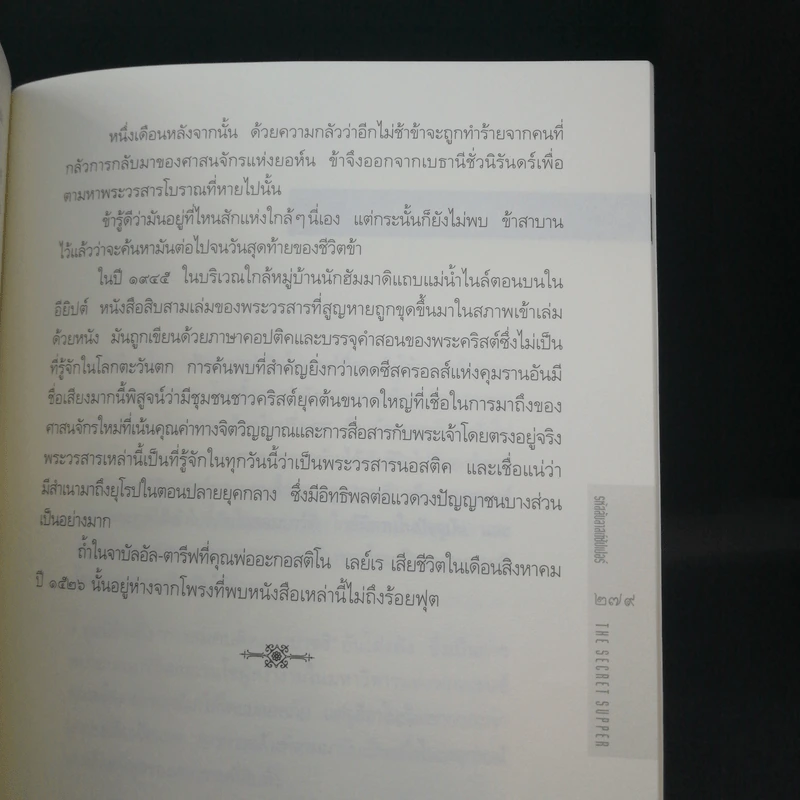 หนึ่งเดือนหลังจากนั้น ด้วยความกลัวว่าอีกไม่ช้าข้าจะถูกทำร้ายจากคนที่
กลัวการกลับมาของศาสนจักรแห่งยอห์น ข้าจึงออกจากเบธานีชั่วนิรันดร์เพื่อ
ตามหาพระวรสารโบราณที่หายไปนั้น
ข้ารู้ดีว่ามันอยู่ที่ไหนสักแห่งใกล้ๆ นี่เอง แต่กระนั้นก็ยังไม่พบ ข้าสาบาน
ไว้แล้วว่าจะค้นหามันต่อไปจนวันสุดท้ายของชีวิตข้า
ในปี ๑๙๔๕ ในบริเวณใกล้หมู่บ้านนักฮัมมาดิแถบแม่น้ำไนล์ตอนบนใน
อียิปต์ หนังสือสิบสามเล่มของพระวรสารที่สูญหายถูกขุดขึ้นมาในสภาพเข้าเล่ม
ด้วยหนัง มันถูกเขียนด้วยภาษาคอปติคและบรรจุคำสอนของพระคริสต์ซึ่งไม่เป็น
ที่รู้จักในโลกตะวันตก การค้นพบที่สำคัญยิ่งกว่าเดดซีสครอลส์แห่งคุมรานอันมี
ชื่อเสียงมากนี้พิสูจน์ว่ามีชุมชนชาวคริสต์ยุคต้นขนาดใหญ่ที่เชื่อในการมาถึงของ
ศาสนจักรใหม่ที่เน้นคุณค่าทางจิตวิญญาณและการสื่อสารกับพระเจ้าโดยตรงอยู่จริง
พระวรสารเหล่านี้เป็นที่รู้จักในทุกวันนี้ว่าเป็นพระวรสารนอสติค และเชื่อแน่ว่า
มีสำเนามาถึงยุโรปในตอนปลายยุคกลาง ซึ่งมีอิทธิพลต่อแวดวงปัญญาชนบางส่วน
เป็นอย่างมาก
ถ้ำในจาบัลอัล-ตารีฟที่คุณพ่ออะกอสติโน เลย์เร เสียชีวิตในเดือนสิงหาคม
ปี ๑๕๒๖ นั้นอยู่ห่างจากโพรงที่พบหนังสือเหล่านี้ไม่ถึงร้อยฟุต
๒๗๙
THE SECRET SUPPER